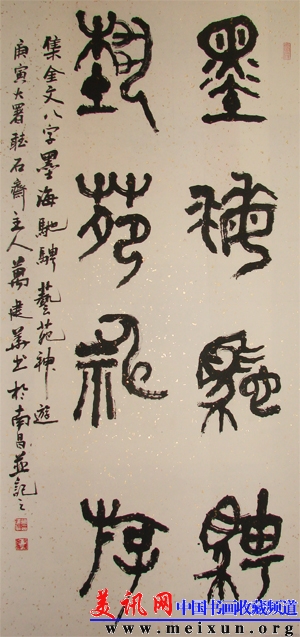 墨海馳騁
藝苑神游
集金文八字墨海馳騁藝苑神遊
庚寅大署聴石齋主人萬建華书於南昌並記之
美讯网
中国书画收藏频道
www.meixun.org